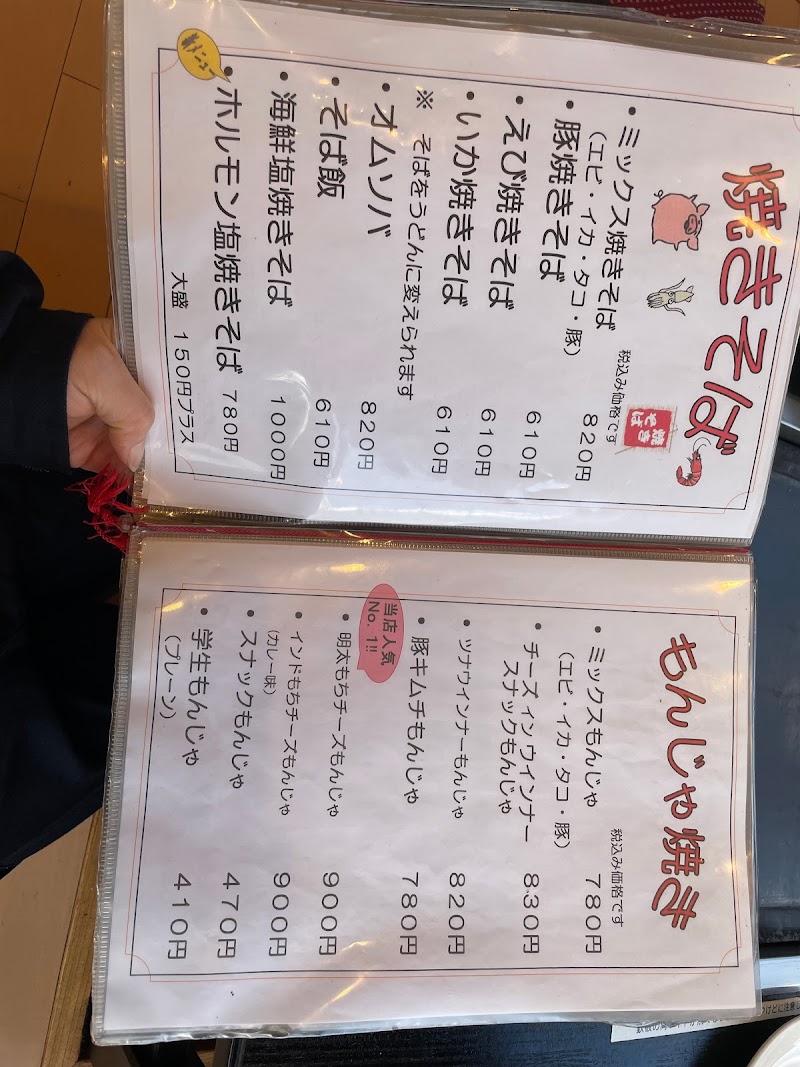 焼きそば
税込み価格です
焼き
そば
・ミックス焼きそば 820円
(エビ・イカ・タコ・豚)
・豚焼きそば 610円
・えび焼きそば 610円
・いか焼きそば 610円
※ そばをうどんに変えられます
・オムソバ 820円
・そば飯 610円
・海鮮塩焼きそば 1000円
・ホルモン塩焼きそば 780円
大盛 150円プラス
もんじゃ焼き
税込み価格です
・ミックスもんじゃ 780円
(エビ・イカ・タコ・豚)
・チーズインウインナー
スナックもんじゃ 830円
・ツナウインナーもんじゃ 820円
・豚キムチもんじゃ 780円
当店人気
No. 1!!
・明太もちチーズもんじゃ 900円
・インドもちチーズもんじゃ 900円
(カレー味)
・スナックもんじゃ 470円
・学生もんじゃ 410円
(プレーン)